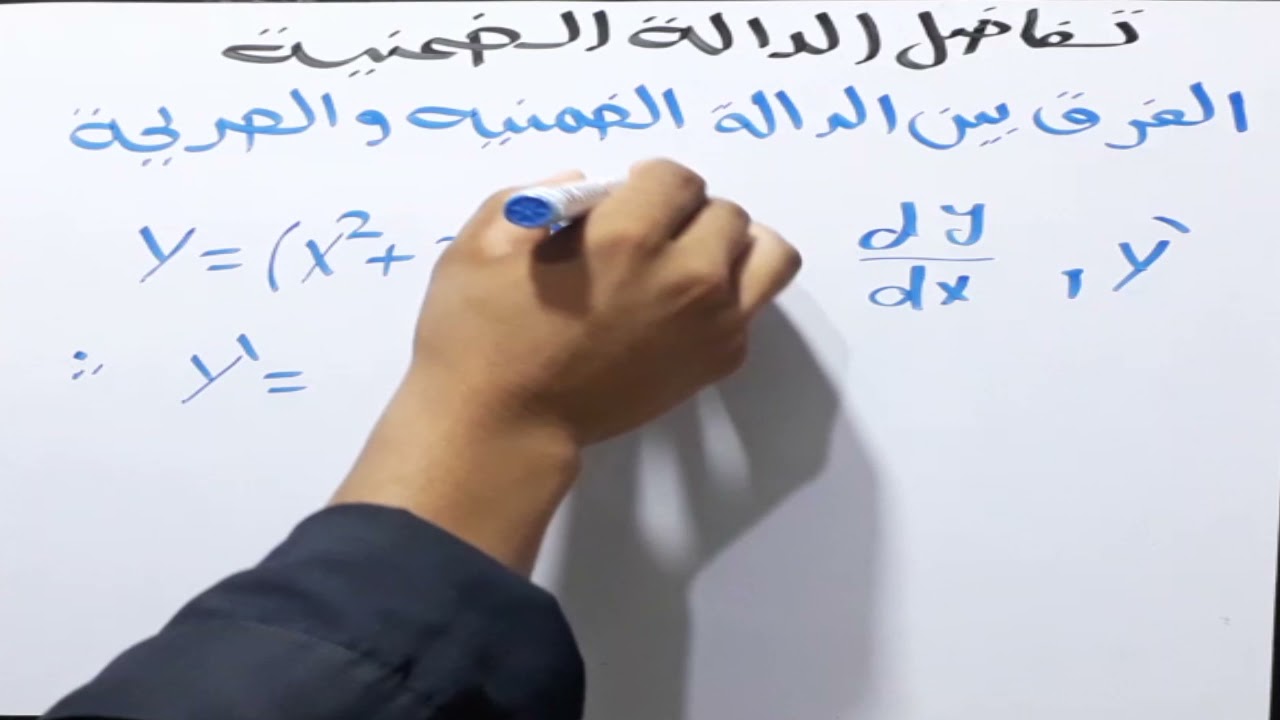 تفاضل الدالة الضمنية
الفرق بين الدالة الضمنيه والصريحة
y = (x² +
dy/dx , y'
∴ y' =